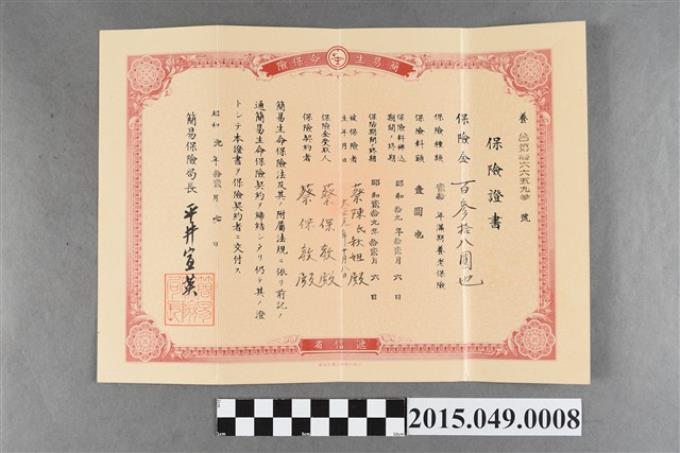 簡易生命保險
養 台第 六六五九 號
保險證書
保險金 百參拾八圓也
保險種類 年滿期養老保險
保險料額 壹圓也
保險料拂込期間ノ終期 昭和 拾九年 拾貳月 六日
保險期間ノ終期 昭和 貳拾九年 拾貳月 六日
被保險者 蔡陳氏秋姐殿
生年月日
保險金受取人 蔡保敦殿
保險契約者 蔡保敦殿
簡易生命保險法及其ノ附屬法規ニ依リ前記ノ
通簡易生命保險契約ヲ締結シタリ仍テ其ノ證
トシテ本證書ヲ保險契約者ニ交付ス
昭和 九年 拾貳月 七日
簡易保險局長 平井宣英
遞信省
2015.049.0008